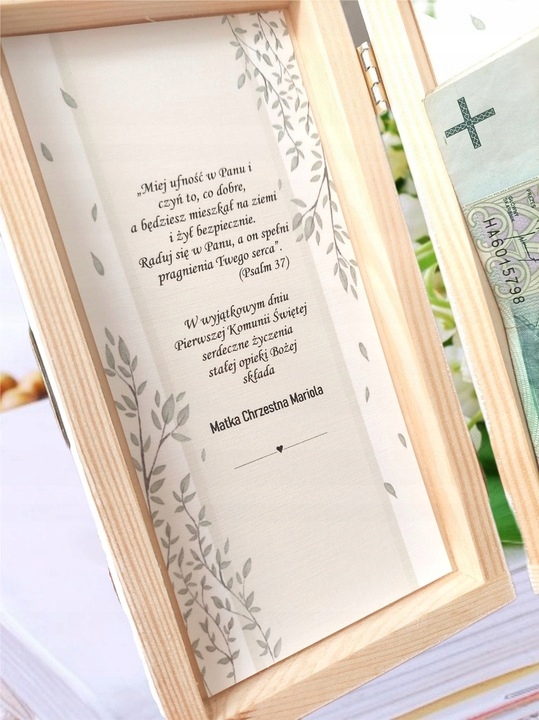 „Miej ufność w Panu i
czyń to, co dobre,
a będziesz mieszkał na ziemi
i żył bezpiecznie.
Raduj się w Panu, a on spełni
pragnienia Twego serca”.
(Psalm 37)
W wyjątkowym dniu
Pierwszej Komunii Świętej
serdeczne życzenia
stałej opieki Bożej
składa
Matka Chrzestna Mariola
HA6015798